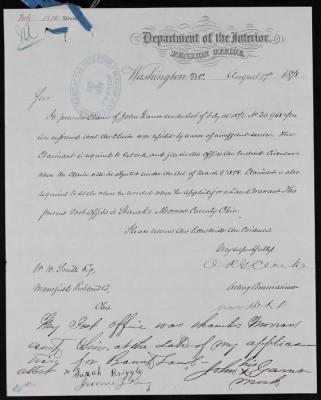 Department of the Interior,
PENSION OFFICE,
Washington D.C. August 17th 187
Sir:
In pension claim of John under Act of Feby 14 1871, No 20,968 you
are informed that the claim was rejected by reason of insufficient service. The
Claimant is required to and furnish this office the enclosed Circular
when the claim will be adjusted under the Act of March 9th 1878. Claimant is also
required to state where he resided when he applied for a Land Warrant. His
present Post Office is Shauks Morrow County Ohio.
Please return this letter with the evidence
Very respectfully
Acting Commissioner
W. W. Smith Esq.
Mansfield Richland Co.
Ohio.
My Post office was Shauks Morrow
County Ohio. at the date of my application
for Bounty Land -
attest x Sarah Briggle John his
Jerome J. King mark